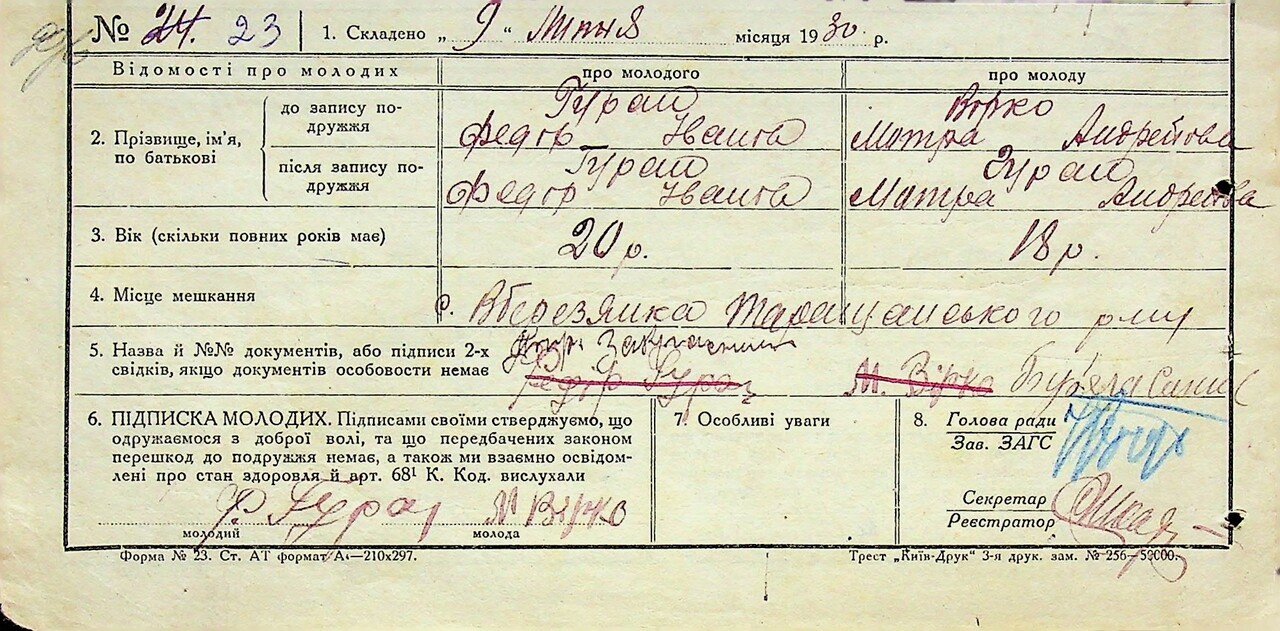 № 24. 23 1. Складено „ 9 “ липня місяця 1930 р.
Відомості про молодих про молодого про молоду
2. Прізвище, ім'я, по батькові
до запису подружжя
Гурай
Федір Іванів
Вірко
Мотря Андреївова
після запису подружжя
Гурай
Федір Іванів
Гурай
Мотря
3. Вік (скільки повних років має) 20 р. 18 р.
4. Місце мешкання с. Таращанського р-ну
5. Назва й №№ документів, або підписи 2-х
свідків, якщо документів особовости немає
Федір Гурай М. Вірко
6. ПІДПИСКА МОЛОДИХ. Підписами своїми стверджуємо, що
одружаємося з доброї волі, та що передбачених законом
перешкод до подружжя немає, а також ми взаємно освідом-
лені про стан здоровля й арт. 68¹ К. Код. вислухали
Ф. Гурай М Вірко
молодий молода
7. Особливі уваги
8. Голова ради
Зав. ЗАГС
Секретар
Реєстратор
Форма № 23. Ст. АТ формат А₄—210х297. Трест „Київ-Друк“ 3-я друк. зам. № 256—50000.